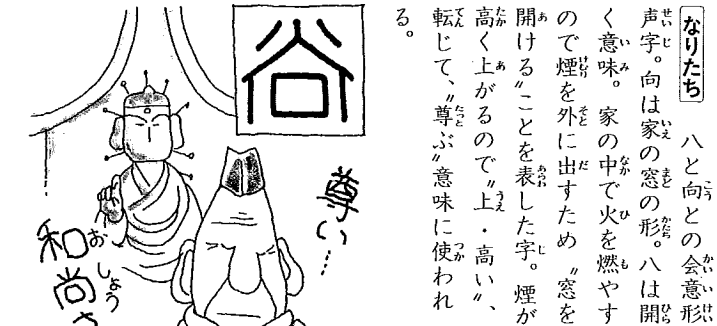 なりたち
八と向との会意形
声字。向は家の窓の形。八は開
く意味。家の中で火を燃やす
ので煙を外に出すため〝窓を
開ける〟ことを表した字。煙が
高く上がるので〝上・高い〟、
転じて、〝尊ぶ〟意味に使われ
る。
尊い…
和尚さ
おしょう